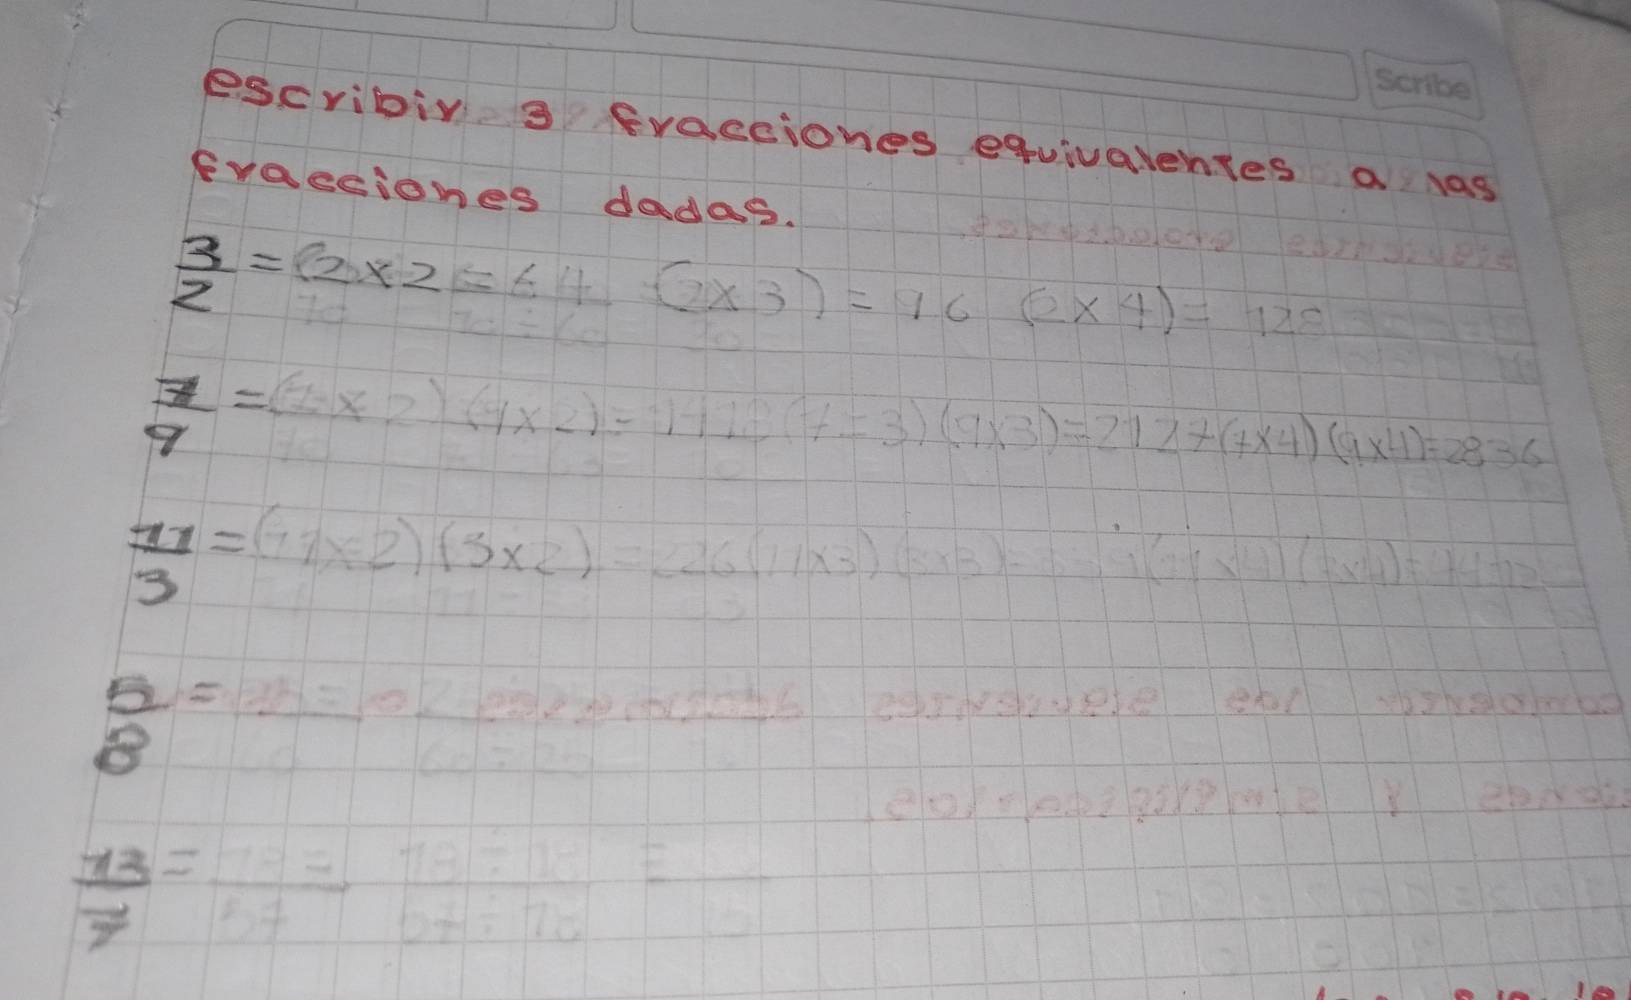 Scribe
escribir 3 fracciones equivalentes a las
fracciones dadas.
3/2 = (2x2 = 64 (2x3) = 96 (2x4) = 128
7/9 = (7x2) (9x2) = 1418 (7=3) (9x3) = 2127 (7x4) (9x4) = 2836
11/3 = (11x2) (3x2) = 226 (11x3) (3x3) = (11x4) (3x4) = 4412
5/8 =
13/7 =